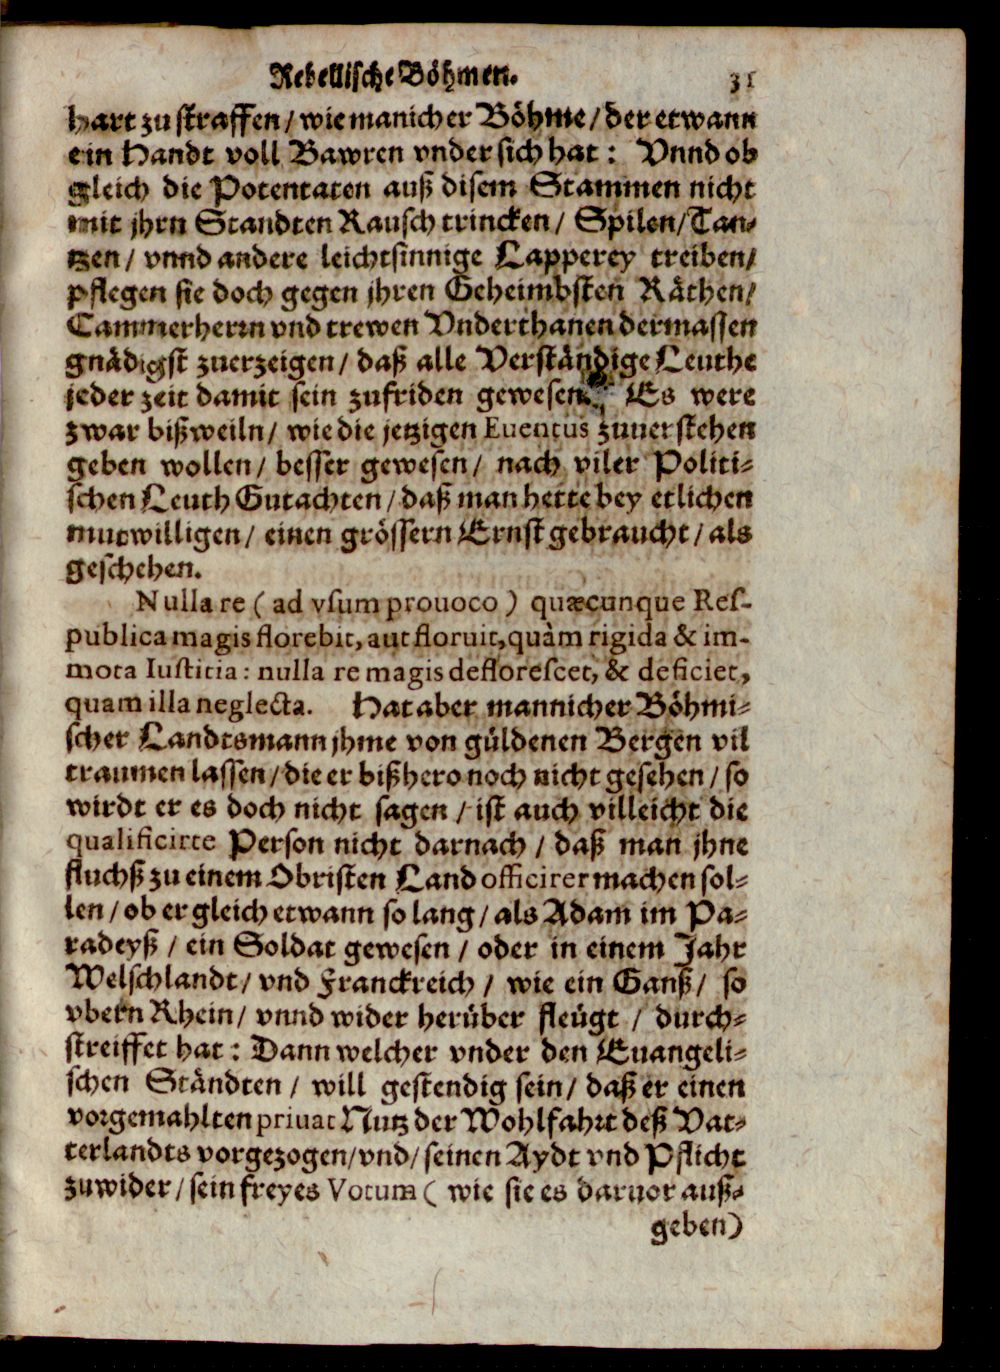 Rebellische Böhmen. 31
hart zu straffen / wie manicher Böhme / der etwann
ein Handt voll Bawren vnder sich hat : Vnnd ob
gleich die Potentaten auß disem Stammen nicht
mit jhrn Standten Rausch trincken / Spilen / Tan⸗
tzen / vnnd andere leichtsinnige Lapperey treiben /
pflegen sie doch gegen jhren Geheimbsten Räthen /
Cammerherrn vnd trewen Vnderthanen dermassen
gnädigst zuerzeigen / daß alle Verständige Leuthe
jeder zeit damit sein zufriden gewesen. Es were
zwar bißweiln / wie die jetzigen Euentus zuuerstehen
geben wollen / besser gewesen / nach viler Politi⸗
schen Leuth Gutachten / daß man hette bey etlichen
mutwilligen / einen grössern Ernst gebraucht / als
geschehen.
Nulla re ( ad vsum prouoco ) quæcunque Res-
publica magis florebit, aut floruit, quàm rigida & im-
mota Iustitia : nulla re magis deflorescet, & deficiet,
quam illa neglecta. Hat aber mannicher Böhmi⸗
scher Landtsmann jhme von güldenen Bergen vil
traumen lassen / die er bißhero noch nicht gesehen / so
wirdt er es doch nicht sagen / ist auch villeicht die
qualificirte Person nicht darnach / daß man jhne
fluchß zu einem Obristen Land officirer machen sol⸗
len / ob er gleich etwann so lang / als Adam im Pa⸗
radeyß / ein Soldat gewesen / oder in einem Jahr
Welschlandt / vnd Franckreich / wie ein Ganß / so
vbern Rhein / vnnd wider herüber fleügt / durch⸗
streiffet hat : Dann welcher vnder den Euangeli⸗
schen Ständten / will gestendig sein / daß er einen
vorgemahlten priuat Nutz der Wohlfahrt deß Vat⸗
terlandts vorgezogen / vnd / seinen Aydt vnd Pflicht
zuwider / sein freyes Votum ( wie sie es daruor auß⸗
geben )